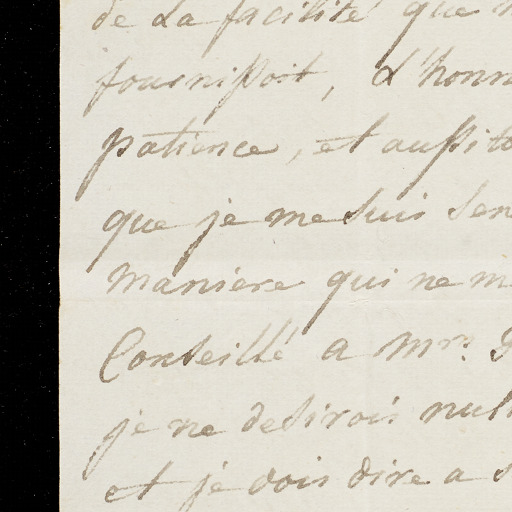 de La facilité que
fournissoit, d'honn
patience, et aussito
que je me suis sen
maniere qui ne m
Conseillé a Mrs.
je ne desirois null
et je dois dire a s